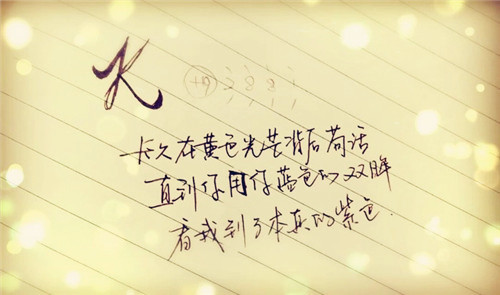 K
长久在黄色光芒背后苟活
直到你用你蓝色的双眸
看我到了本真的紫色.